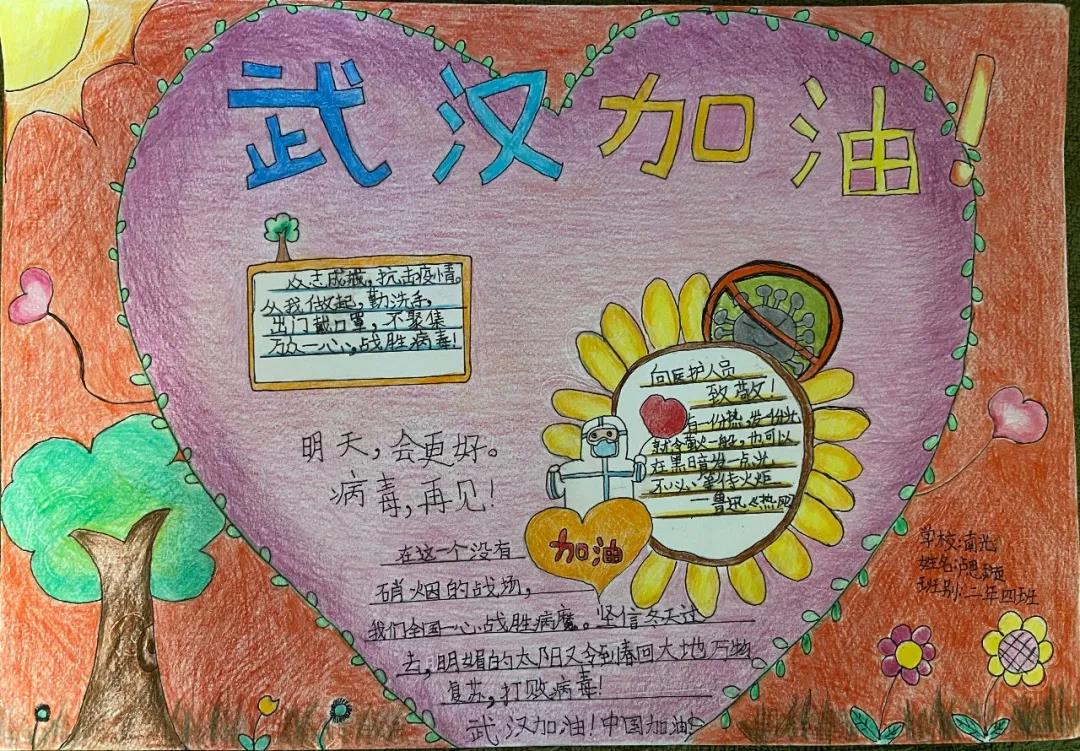 武汉加油！
众志成城，抗击疫情。
从我做起，勤洗手，
出门戴口罩，不聚集
万众一心，战胜病毒！
向医护人员
致敬！
有一份热，发一份光
就令萤火一般，也可以
在黑暗发一点光，
不必等待火炬
——鲁迅《热风》
明天，会更好。
病毒，再见！
加油
在这一个没有
硝烟的战场，
我们全国一心战胜病魔。坚信冬天过
去，明媚的太阳又令到春回大地万物
复苏，打败病毒！
武汉加油！中国加油！
学校：南光
姓名：
班别：二年四班